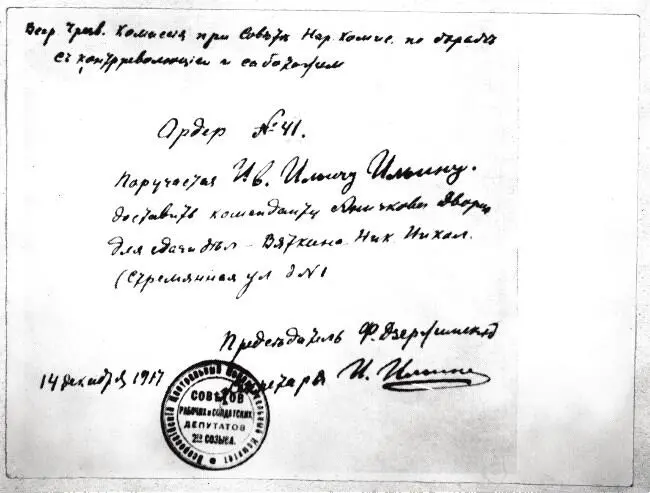 Всер. Чрезв. Комиссия при Совѣтѣ Нар. Комис. по борьбѣ
съ контрреволюціей и саботажем
Ордер № 41.
Поручается Ив. Ильичу Ильину.
доставить коменданта Аничкова Дворца
для сдачи дѣл - Вяткина Ник. Никол.
(Стремянная ул. д N 1
Председатель Ф. Дзержинский
14 декабря 1917
Секретарь И. Ильин
Всероссійскій Центральный Исполнительный Комитет
СОВѢТОВ
РАБОЧИХ и СОЛДАТСКИХ
ДЕПУТАТОВ
2го СОЗЫВА.